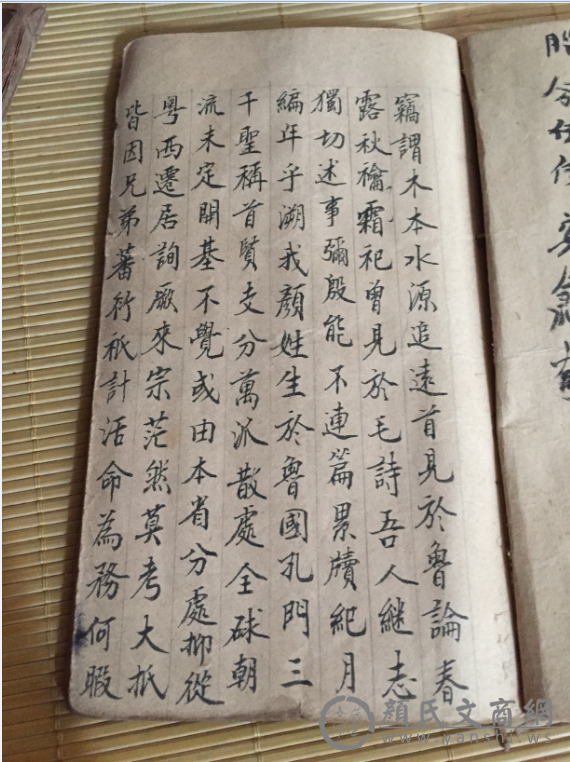 竊謂木本水源追遠首見於魯論春
露秋禴霜祀曾見於毛詩吾人繼志
獨切述事彌殷能不連篇累牘紀月
編年乎溯我顏姓生於魯國孔門三
千聖稱首賢支分萬派散處全球朝
流未定開基不覺或由本省分處抑從
粵西遷居詢厥來宗茫然莫考大抵
皆因兄弟蕃衍祇計活命為務何暇
顏氏文商網
www.yanshi.ws